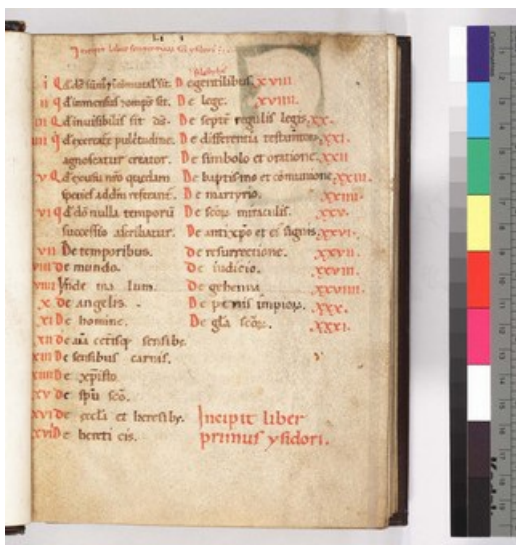 Incipit liber sententiarum sci ysidori
i Qd ds sumus et incomutabil sit.
ii Qd immensus et omps sit.
iii Qd inuisibilis sit ds.
iiii Qd ex creature pulcritudine.
agnoscatur creator.
v Qd ex usu nro quedam
species addm referant.
vi Qd do nulla temporu
successio ascribatur.
vii De temporibus.
viii De mundo.
viiii Vnde ma lum.
x De angelis.
xi De homine.
xii De aia cetisq sensibz
xiii De sensibus carnis.
xiiii De xpisto
xv De spu sco.
xvi De eccla et heresibz.
xvii De hereti cis.
De gentilibus. xviii.
De lege. xviiii.
De septe regulis legis. xx.
De differentia testamtorum. xxi.
De simbolo et oratione. xxii
De baptismo et comunione. xxiii.
De martyrio. xxiiii.
De scorum miraculis. xxv.
De antixpo et ei signis. xxvi.
De resurrectione. xxvii.
De iudicio. xxviii.
De gehenna xxviiii.
De penis impiorum. xxx.
De gla scorum. xxxi.
Incipit liber
primus ysidori.